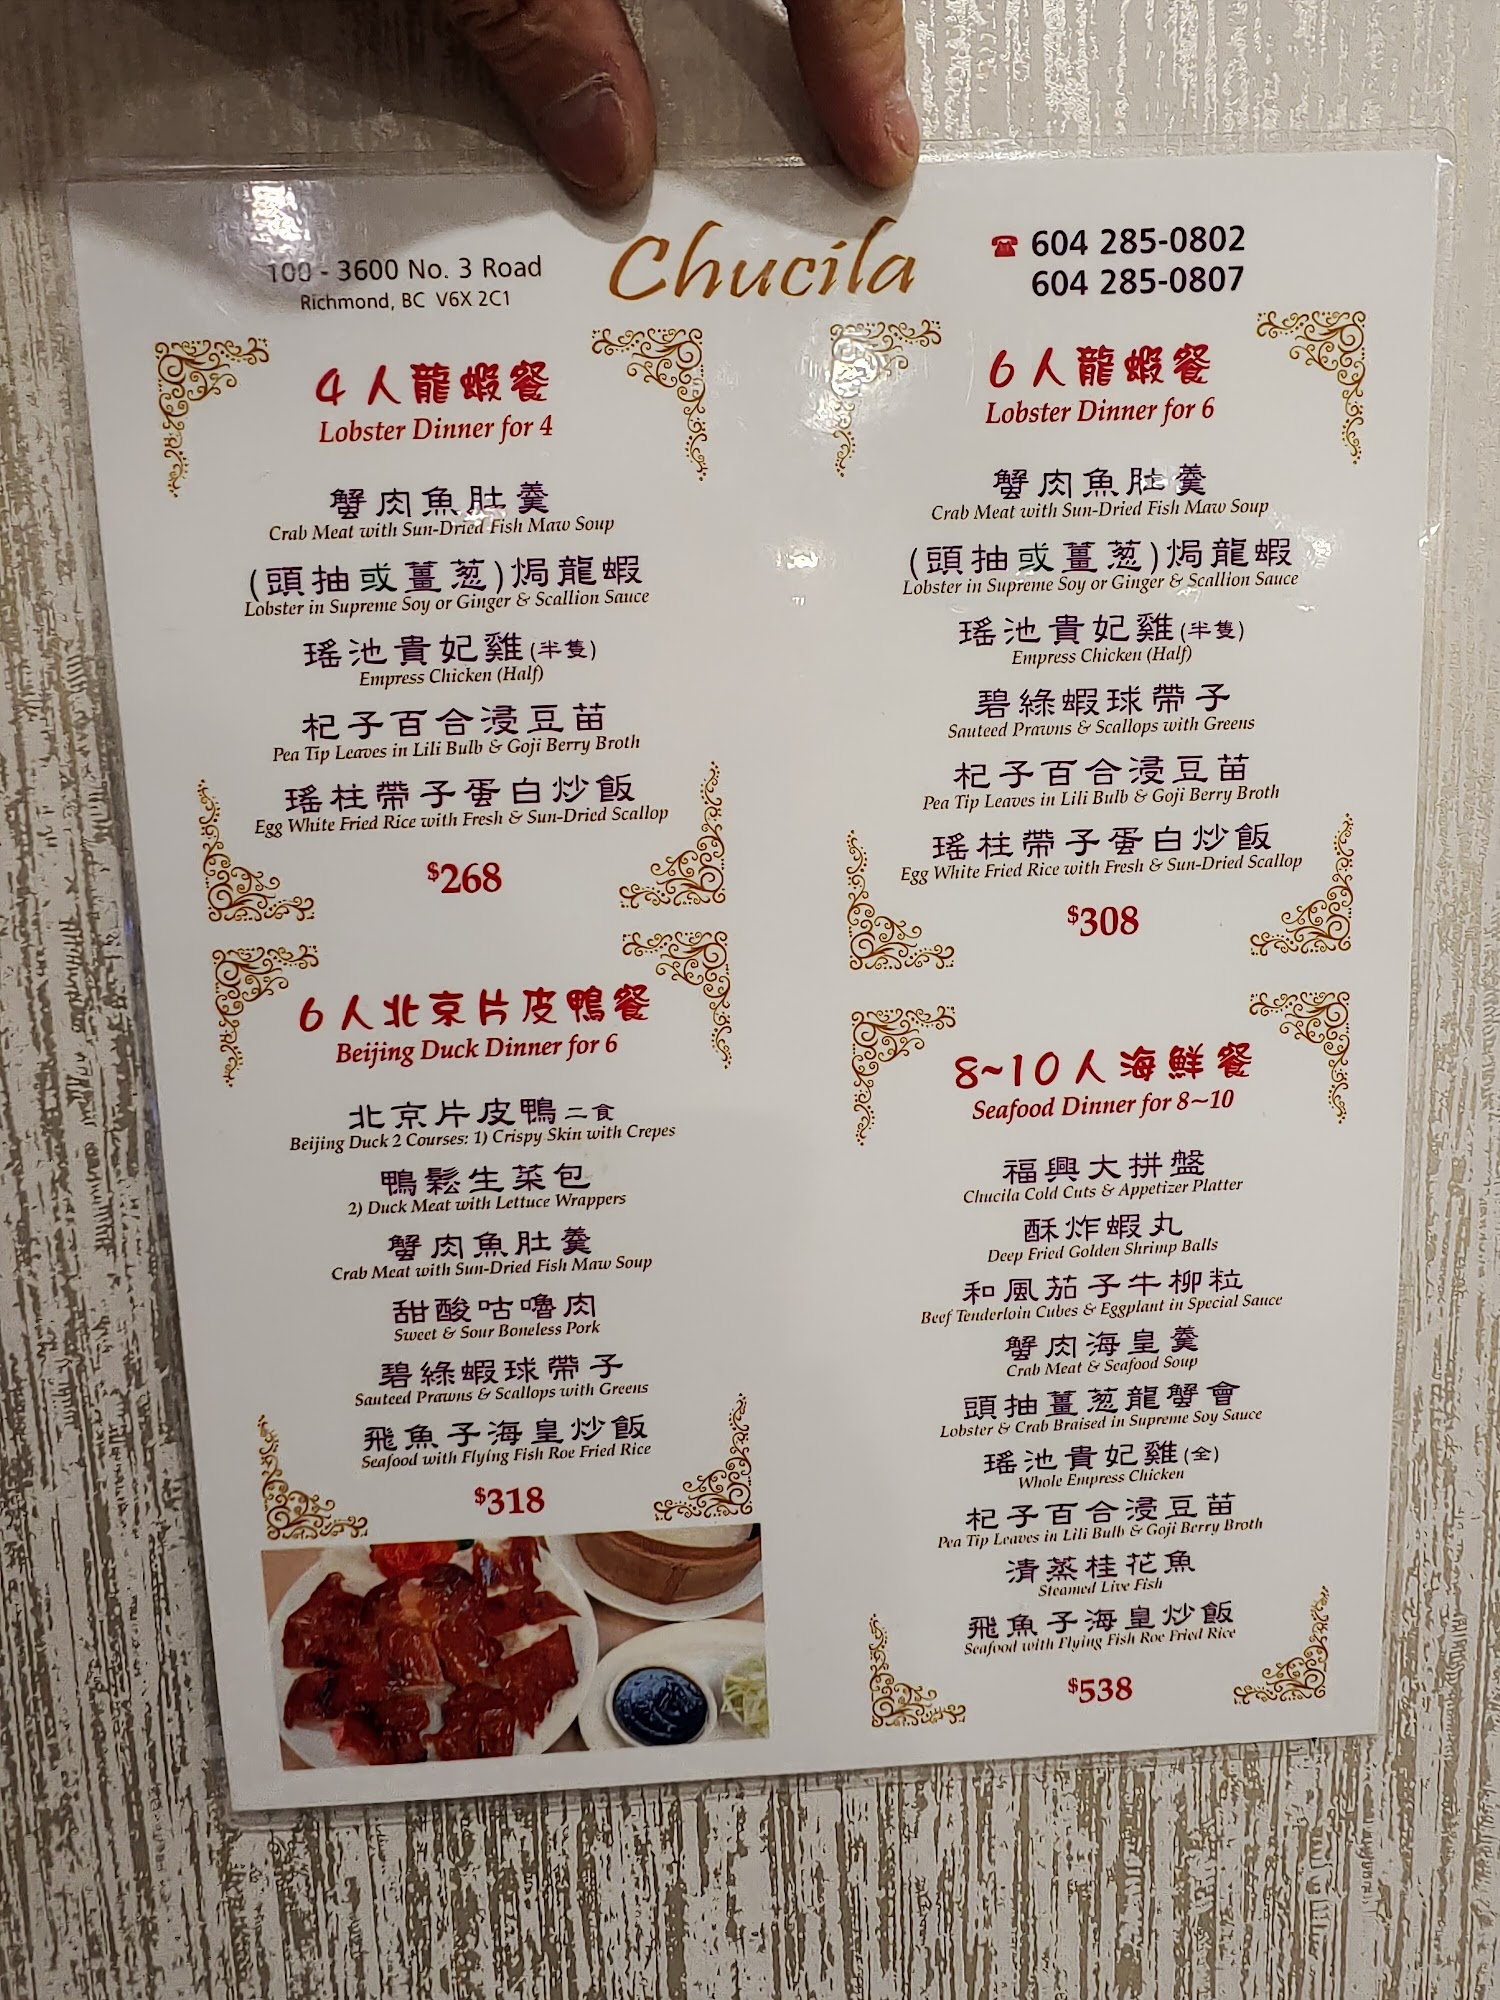 100 - 3600 No. 3 Road
Richmond, BC V6X 2C1
Chucila
☎ 604 285-0802
604 285-0807
4人龍蝦餐
Lobster Dinner for 4
蟹肉魚肚羹
Crab Meat with Sun-Dried Fish Maw Soup
(頭抽或薑葱)焗龍蝦
Lobster in Supreme Soy or Ginger & Scallion Sauce
瑤池貴妃雞(半隻)
Empress Chicken (Half)
杞子百合浸豆苗
Pea Tip Leaves in Lili Bulb & Goji Berry Broth
瑤柱帶子蛋白炒飯
Egg White Fried Rice with Fresh & Sun-Dried Scallop
$268
6人龍蝦餐
Lobster Dinner for 6
蟹肉魚肚羹
Crab Meat with Sun-Dried Fish Maw Soup
(頭抽或薑葱)焗龍蝦
Lobster in Supreme Soy or Ginger & Scallion Sauce
瑤池貴妃雞(半隻)
Empress Chicken (Half)
碧綠蝦球帶子
Sauteed Prawns & Scallops with Greens
杞子百合浸豆苗
Pea Tip Leaves in Lili Bulb & Goji Berry Broth
瑤柱帶子蛋白炒飯
Egg White Fried Rice with Fresh & Sun-Dried Scallop
$308
6人北京片皮鴨餐
Beijing Duck Dinner for 6
北京片皮鴨二食
Beijing Duck 2 Courses: 1) Crispy Skin with Crepes
鴨鬆生菜包
2) Duck Meat with Lettuce Wrappers
蟹肉魚肚羹
Crab Meat with Sun-Dried Fish Maw Soup
甜酸咕嚕肉
Sweet & Sour Boneless Pork
碧綠蝦球帶子
Sauteed Prawns & Scallops with Greens
飛魚子海皇炒飯
Seafood with Flying Fish Roe Fried Rice
$318
8~10人海鮮餐
Seafood Dinner for 8~10
福興大拼盤
Chucila Cold Cuts & Appetizer Platter
酥炸蝦丸
Deep Fried Golden Shrimp Balls
和風茄子牛柳粒
Beef Tenderloin Cubes & Eggplant in Special Sauce
蟹肉海皇羹
Crab Meat & Seafood Soup
頭抽薑葱龍蟹會
Lobster & Crab Braised in Supreme Soy Sauce
瑤池貴妃雞(全)
Whole Empress Chicken
杞子百合浸豆苗
Pea Tip Leaves in Lili Bulb & Goji Berry Broth
清蒸桂花魚
Steamed Live Fish
飛魚子海皇炒飯
Seafood with Flying Fish Roe Fried Rice
$538